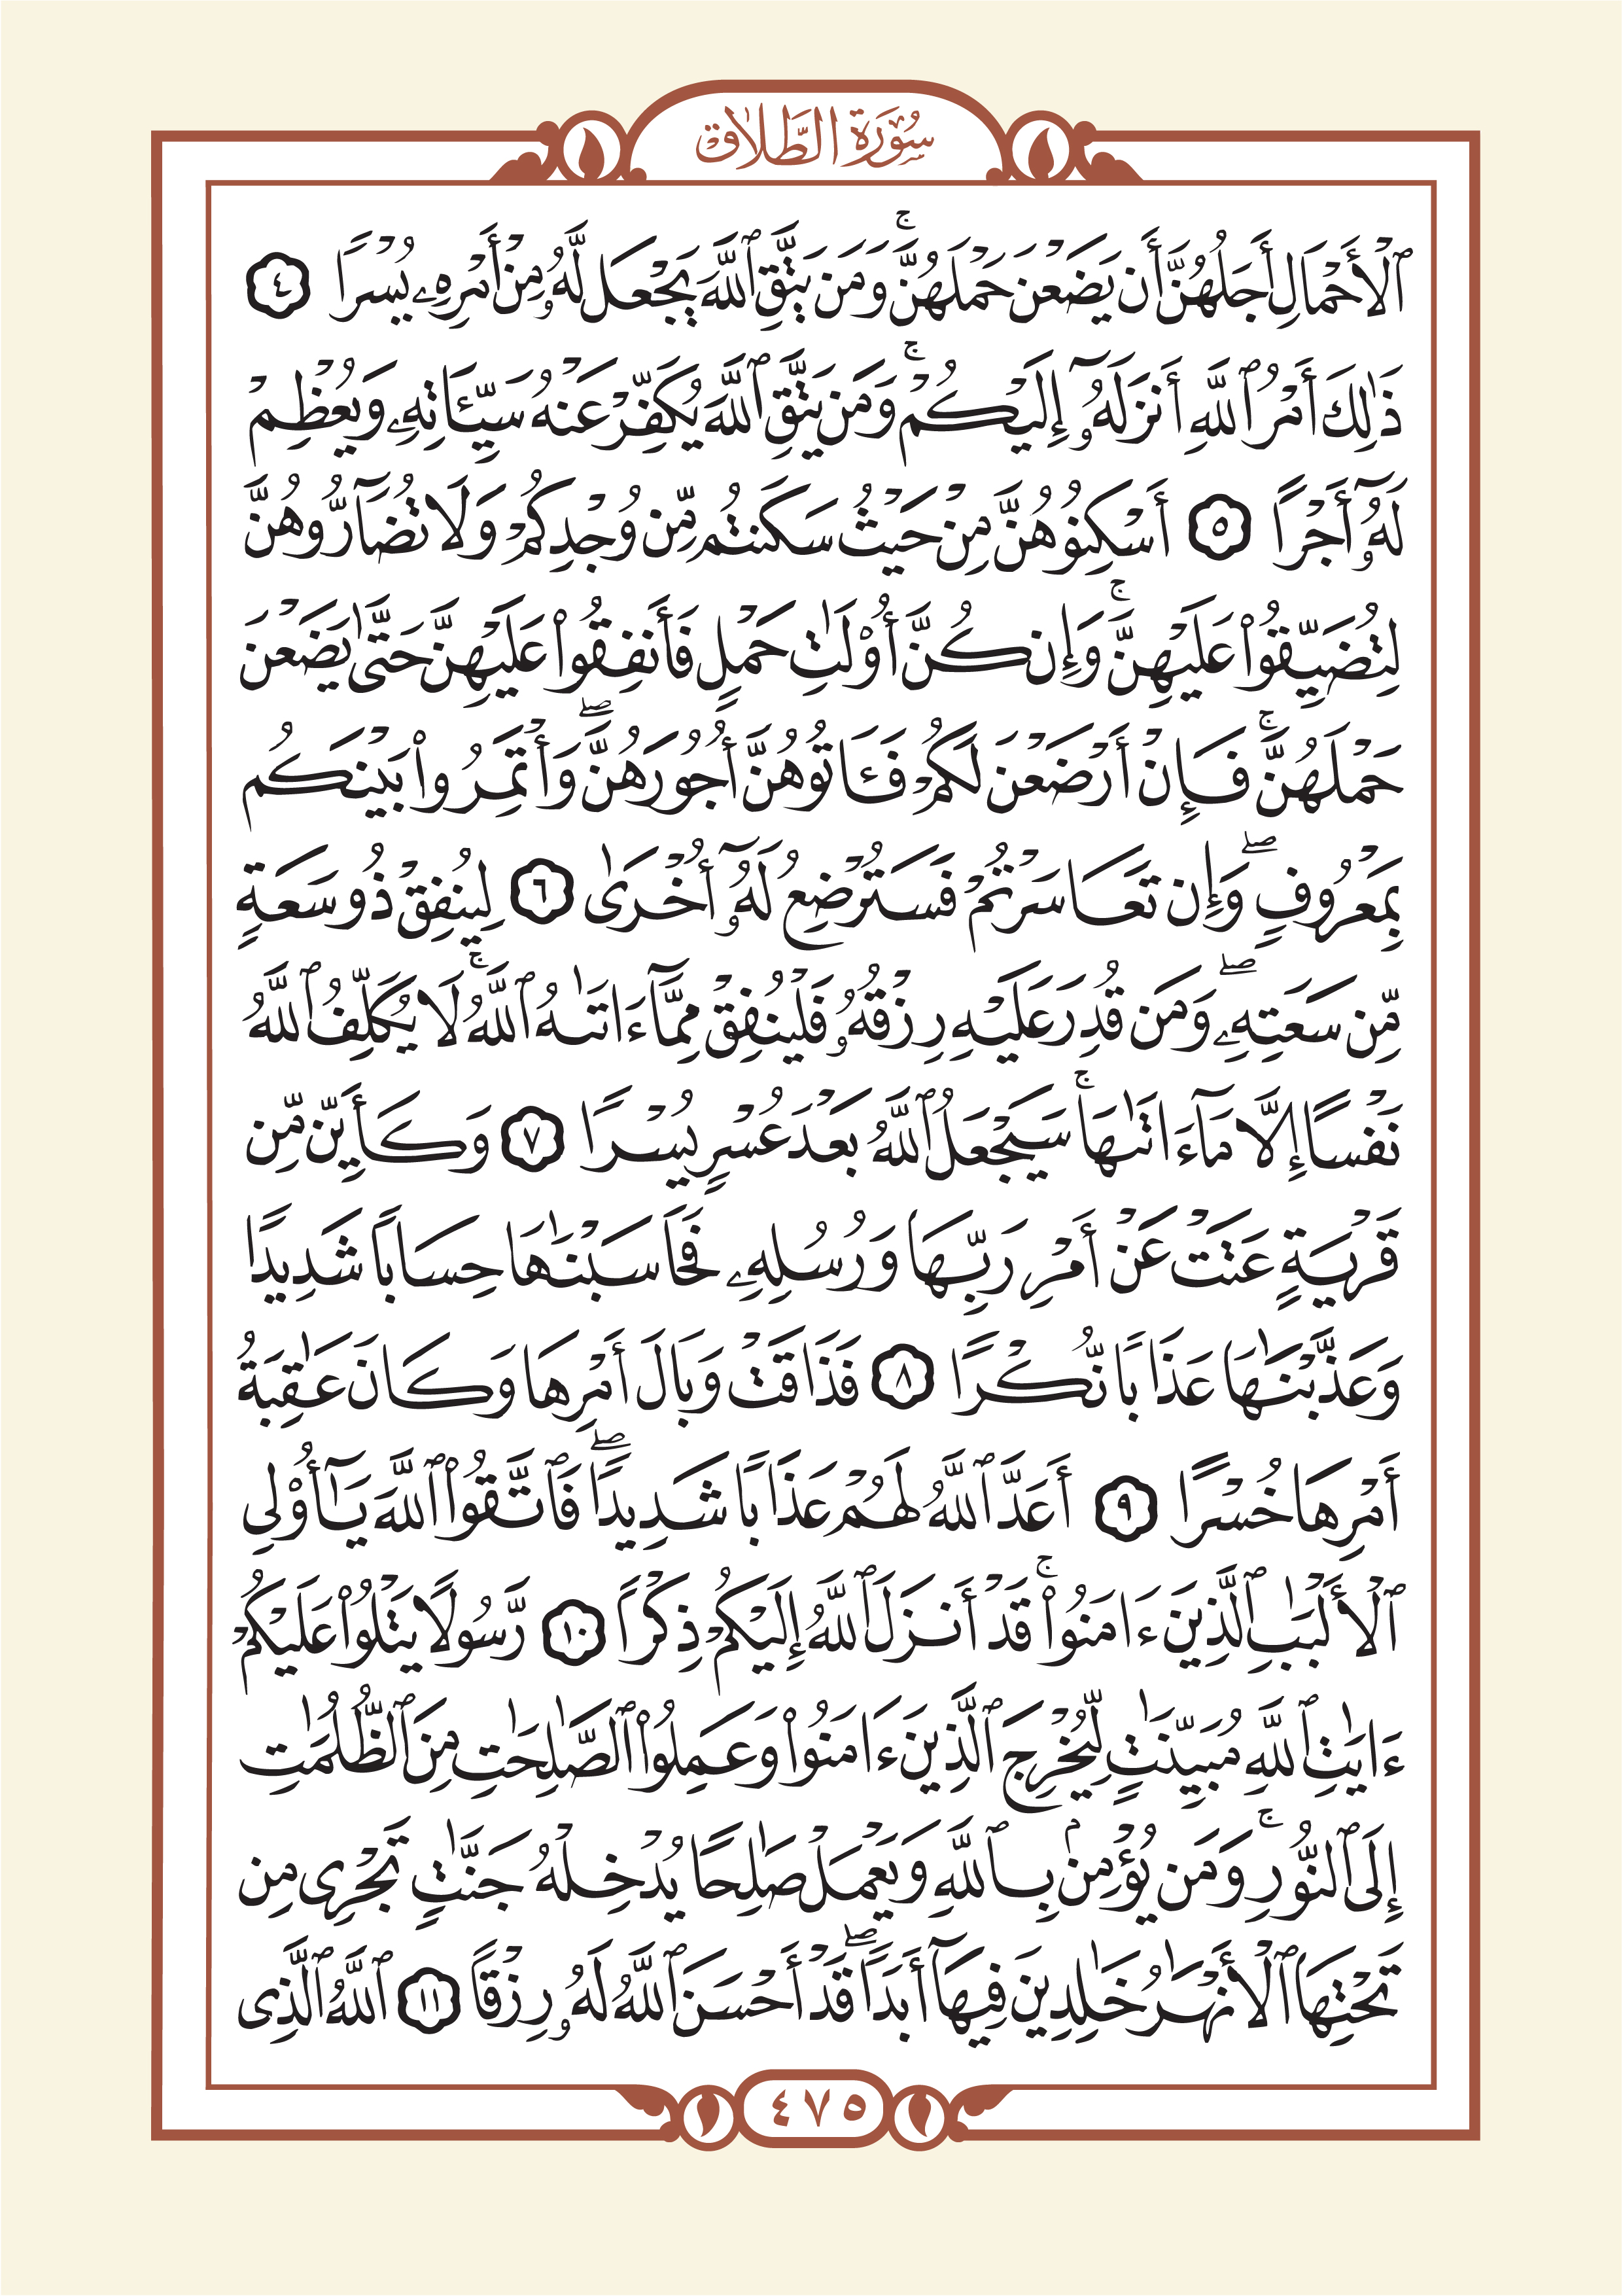 سُورَةُ الطَّلَاقِ
ٱلْأَحْمَالِ أَجَلُهُنَّ أَن يَضَعْنَ حَمْلَهُنَّۚ وَمَن يَتَّقِ ٱللَّهَ يَجْعَل لَّهُۥ مِنْ أَمْرِهِۦ يُسْرًا ٤
ذَٰلِكَ أَمْرُ ٱللَّهِ أَنزَلَهُۥٓ إِلَيْكُمْۚ وَمَن يَتَّقِ ٱللَّهَ يُكَفِّرْ عَنْهُ سَيِّـَٔاتِهِۦ وَيُعْظِمْ
لَهُۥٓ أَجْرًا ٥ أَسْكِنُوهُنَّ مِنْ حَيْثُ سَكَنتُم مِّن وُجْدِكُمْ وَلَا تُضَآرُّوهُنَّ
لِتُضَيِّقُوا۟ عَلَيْهِنَّۚ وَإِن كُنَّ أُو۟لَٰتِ حَمْلٍ فَأَنفِقُوا۟ عَلَيْهِنَّ حَتَّىٰ يَضَعْنَ
حَمْلَهُنَّۚ فَإِنْ أَرْضَعْنَ لَكُمْ فَـَٔاتُوهُنَّ أُجُورَهُنَّۖ وَأْتَمِرُوا۟ بَيْنَكُم
بِمَعْرُوفٍۖ وَإِن تَعَاسَرْتُمْ فَسَتُرْضِعُ لَهُۥٓ أُخْرَىٰ ٦ لِيُنفِقْ ذُو سَعَةٍ
مِّن سَعَتِهِۦۖ وَمَن قُدِرَ عَلَيْهِ رِزْقُهُۥ فَلْيُنفِقْ مِمَّآ ءَاتَىٰهُ ٱللَّهُۚ لَا يُكَلِّفُ ٱللَّهُ
نَفْسًا إِلَّا مَآ ءَاتَىٰهَاۚ سَيَجْعَلُ ٱللَّهُ بَعْدَ عُسْرٍ يُسْرًا ٧ وَكَأَيِّن مِّن
قَرْيَةٍ عَتَتْ عَنْ أَمْرِ رَبِّهَا وَرُسُلِهِۦ فَحَاسَبْنَٰهَا حِسَابًا شَدِيدًا
وَعَذَّبْنَٰهَا عَذَابًا نُّكْرًا ٨ فَذَاقَتْ وَبَالَ أَمْرِهَا وَكَانَ عَٰقِبَةُ
أَمْرِهَا خُسْرًا ٩ أَعَدَّ ٱللَّهُ لَهُمْ عَذَابًا شَدِيدًاۖ فَٱتَّقُوا۟ ٱللَّهَ يَٰٓأُو۟لِى
ٱلْأَلْبَٰبِ ٱلَّذِينَ ءَامَنُوا۟ۚ قَدْ أَنزَلَ ٱللَّهُ إِلَيْكُمْ ذِكْرًا ١٠ رَّسُولًا يَتْلُوا۟ عَلَيْكُمْ
ءَايَٰتِ ٱللَّهِ مُبَيِّنَٰتٍ لِّيُخْرِجَ ٱلَّذِينَ ءَامَنُوا۟ وَعَمِلُوا۟ ٱلصَّٰلِحَٰتِ مِنَ ٱلظُّلُمَٰتِ
إِلَى ٱلنُّورِۚ وَمَن يُؤْمِنۢ بِٱللَّهِ وَيَعْمَلْ صَٰلِحًا يُدْخِلْهُ جَنَّٰتٍ تَجْرِى مِن
تَحْتِهَا ٱلْأَنْهَٰرُ خَٰلِدِينَ فِيهَآ أَبَدًاۖ قَدْ أَحْسَنَ ٱللَّهُ لَهُۥ رِزْقًا ١١ ٱللَّهُ ٱلَّذِى
٤٧٥